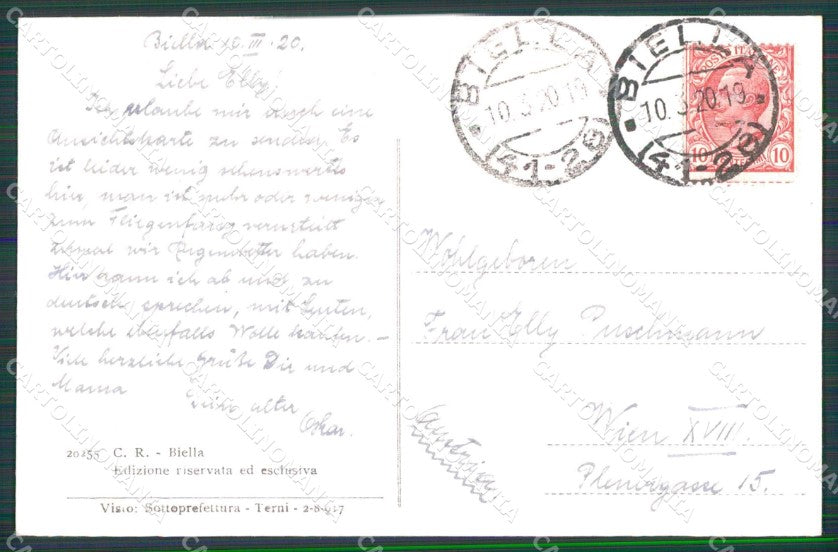 Biella 10.III.20.
Liebe Elly!
Ich erlaube mir Dich eine
Ansichtskarte zu senden. Es
ist leider wenig sehenswertes
hier, man ist mehr oder weniger
zum
wir Regenwetter haben.
Hier kann ich ab und zu
deutsch sprechen, mit Leuten,
welche ebenfalls Wolle kaufen. –
Viele herzliche Grüße Dir und
Mama
Dein alter
Oskar.
20255 C. R. - Biella
Edizione riservata ed esclusiva
Visto: Sottoprefettura - Terni - 2-8-917
BIELLA
10.3.20.19
(41-20)
BIELLA
10.3.20.19
(41-20)
POSTE ITALIANE
10 10
Wohlgeboren
Frau Elly Puschmann
Wien XVIII.
15.
Austria
CARTOLINOMANIA